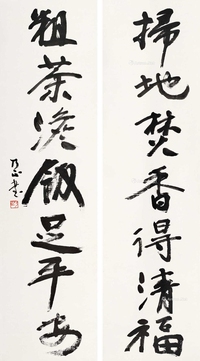 掃地焚香得清福
粗茶淡飯足平安
乃正書